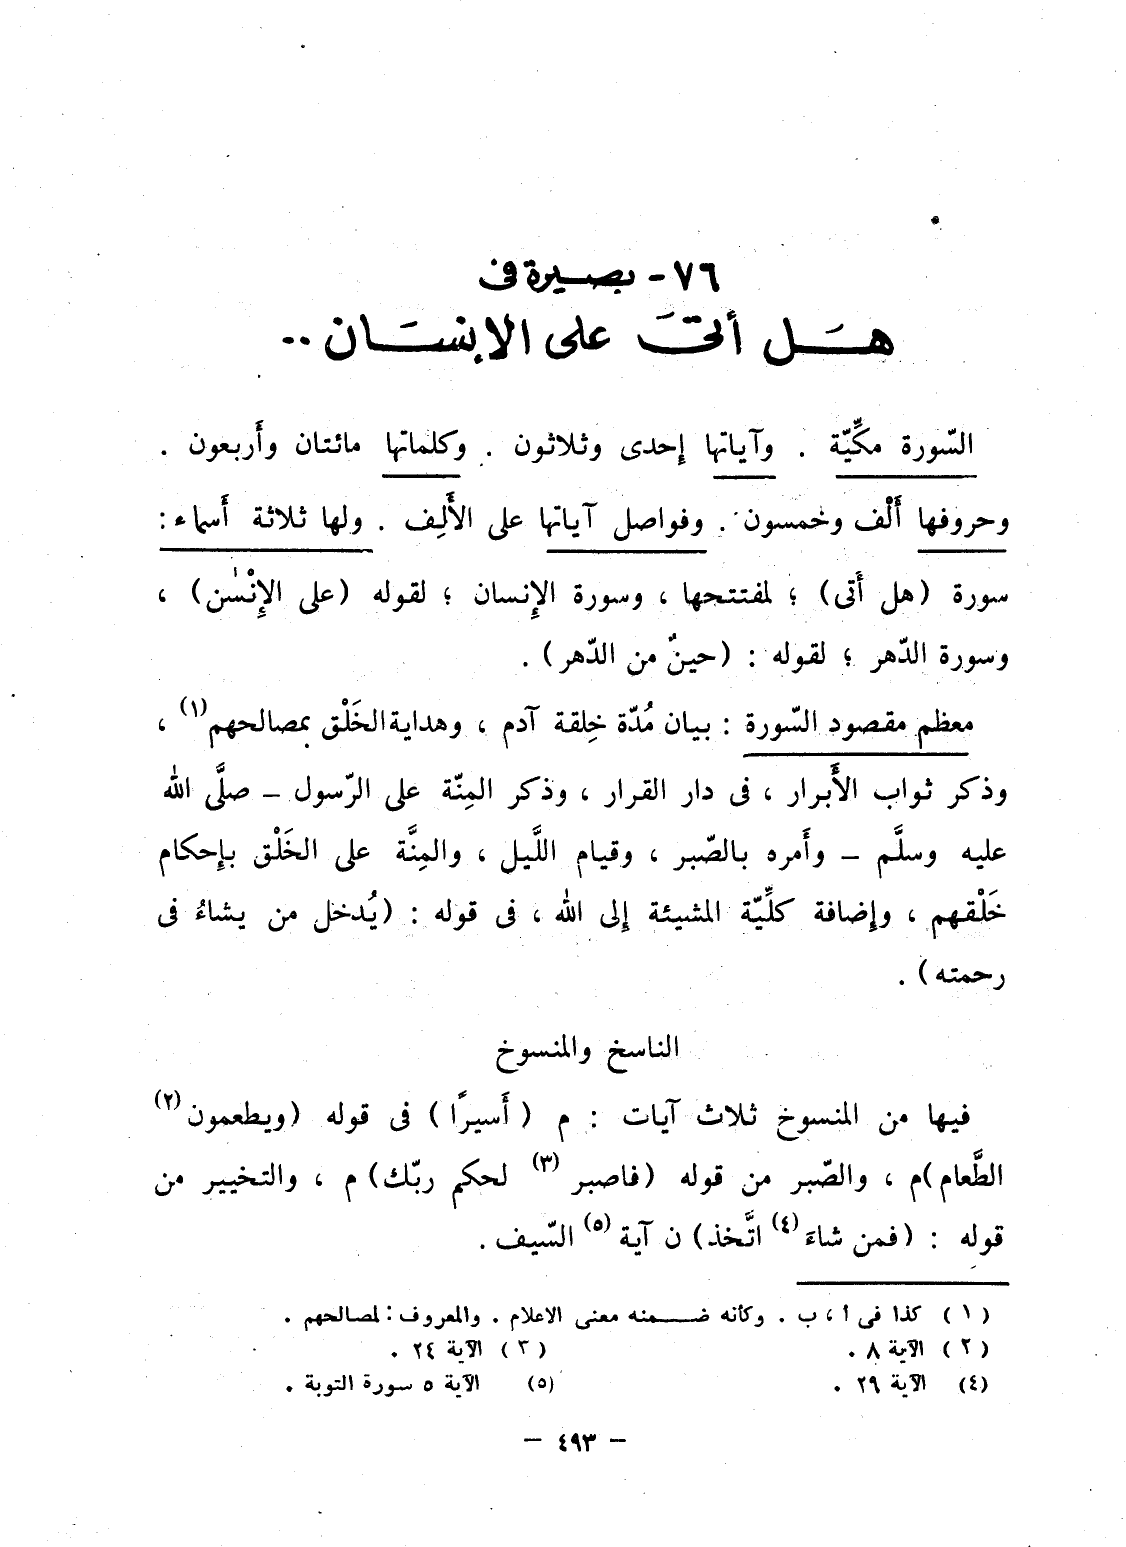 ٧٦- بصيرة فى
هَل أتىَ على الإنسَان ..
السّورة مكِّيّة . وآياتها إحدى وثلاثون . وكلماتها مائتان وأربعون .
وحروفها أَلْف وخمسون . وفواصل آياتها على الأَلِف . ولها ثلاثة أَسماء :
سورة (هل أَتى) ؛ لمفتتحها ، وسورة الإِنسان ؛ لقوله (على الإِنْسٰن) ،
وسورة الدّهر ؛ لقوله : (حينٌ من الدّهر) .
معظم مقصود السّورة : بيان مُدّة خِلقة آدم ، وهداية الخَلْق بمصالحهم(١) ،
وذكر ثواب الأَبرار ، فى دار القرار ، وذكر المِنّة على الرّسول – صلَّى الله
عليه وسلَّم – وأَمره بالصّبر ، وقيام اللَّيل ، والمِنَّة على الخَلْق بإِحكام
خَلْقهم ، وإِضافة كلِّيّة المشيئة إِلى الله ، فى قوله : (يُدخل من يشاءُ فى
رحمته) .
الناسخ والمنسوخ
فيها من المنسوخ ثلاث آيات : م (أَسيرًا) فى قوله (ويطعمون(٢)
الطَّعام)م ، والصّبر من قوله (فاصبر(٣) لحكم ربّك) م ، والتخيير من
قوله : (فمن شاءَ(٤) اتَّخذ) ن آية(٥) السّيف .
(١) كذا فى أ ، ب . وكأنه ضمنه معنى الاعلام . والمعروف : لمصالحهم .
(٢) الآية ٨ . (٣) الآية ٢٤ .
(٤) الآية ٢٩ . (٥) الآية ٥ سورة التوبة .
– ٤٩٣ –